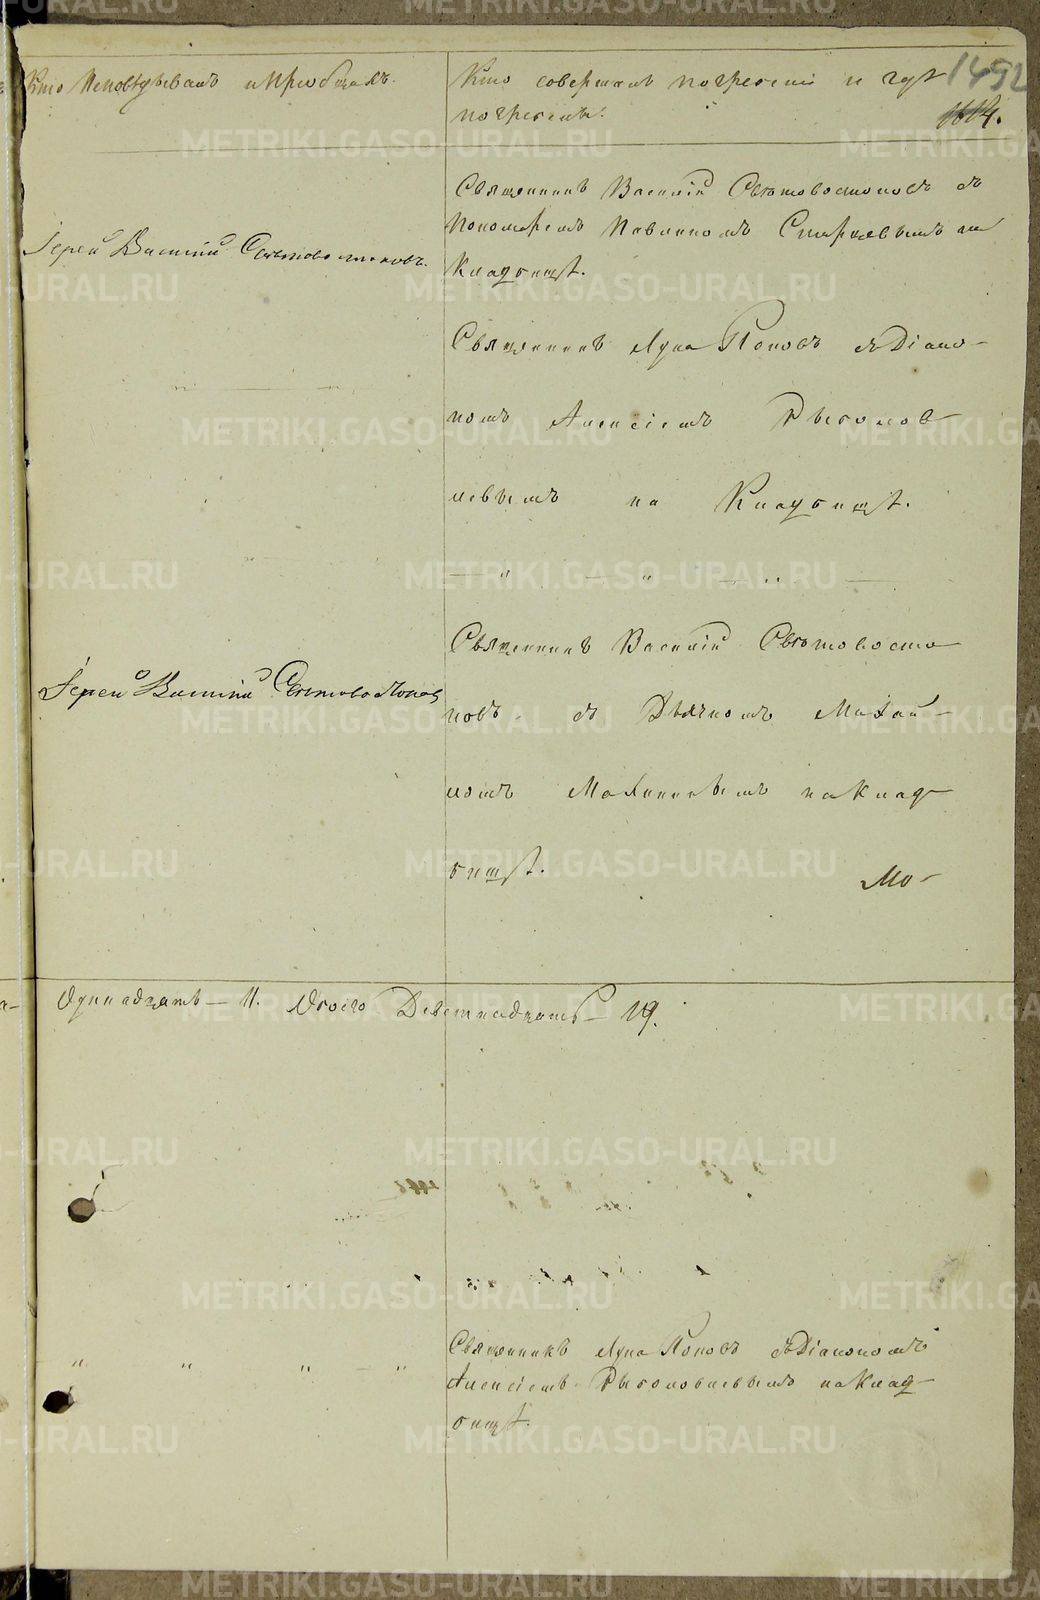 Кто Исповѣдывалъ и Приобщалъ.
Кто совершалъ погребеніе и гдѣ
погребенъ.
1492
Священникъ Василій Свѣтовостоковъ съ
Пономаремъ Павлиномъ на
Кладбищѣ.
Іерей Василій Свѣтовостоковъ.
Священникъ Лука Поповъ съ Діако-
номъ Алексіемъ Рыболов-
левымъ на Кладбищѣ.
Священникъ Василій Свѣтовосто
ковъ съ Дьячкомъ Михаи-
ломъ на Клад-
бищѣ.
Іерей Василій Свѣтовостоковъ
Мо-
Одинадцать — 11. Обоего Девятнадцать — 19.
Священникъ Лука Поповъ съ Діакономъ
Алексіемъ Рыболовлевымъ на Клад-
бищѣ.
METRIKI.GASO-URAL.RU